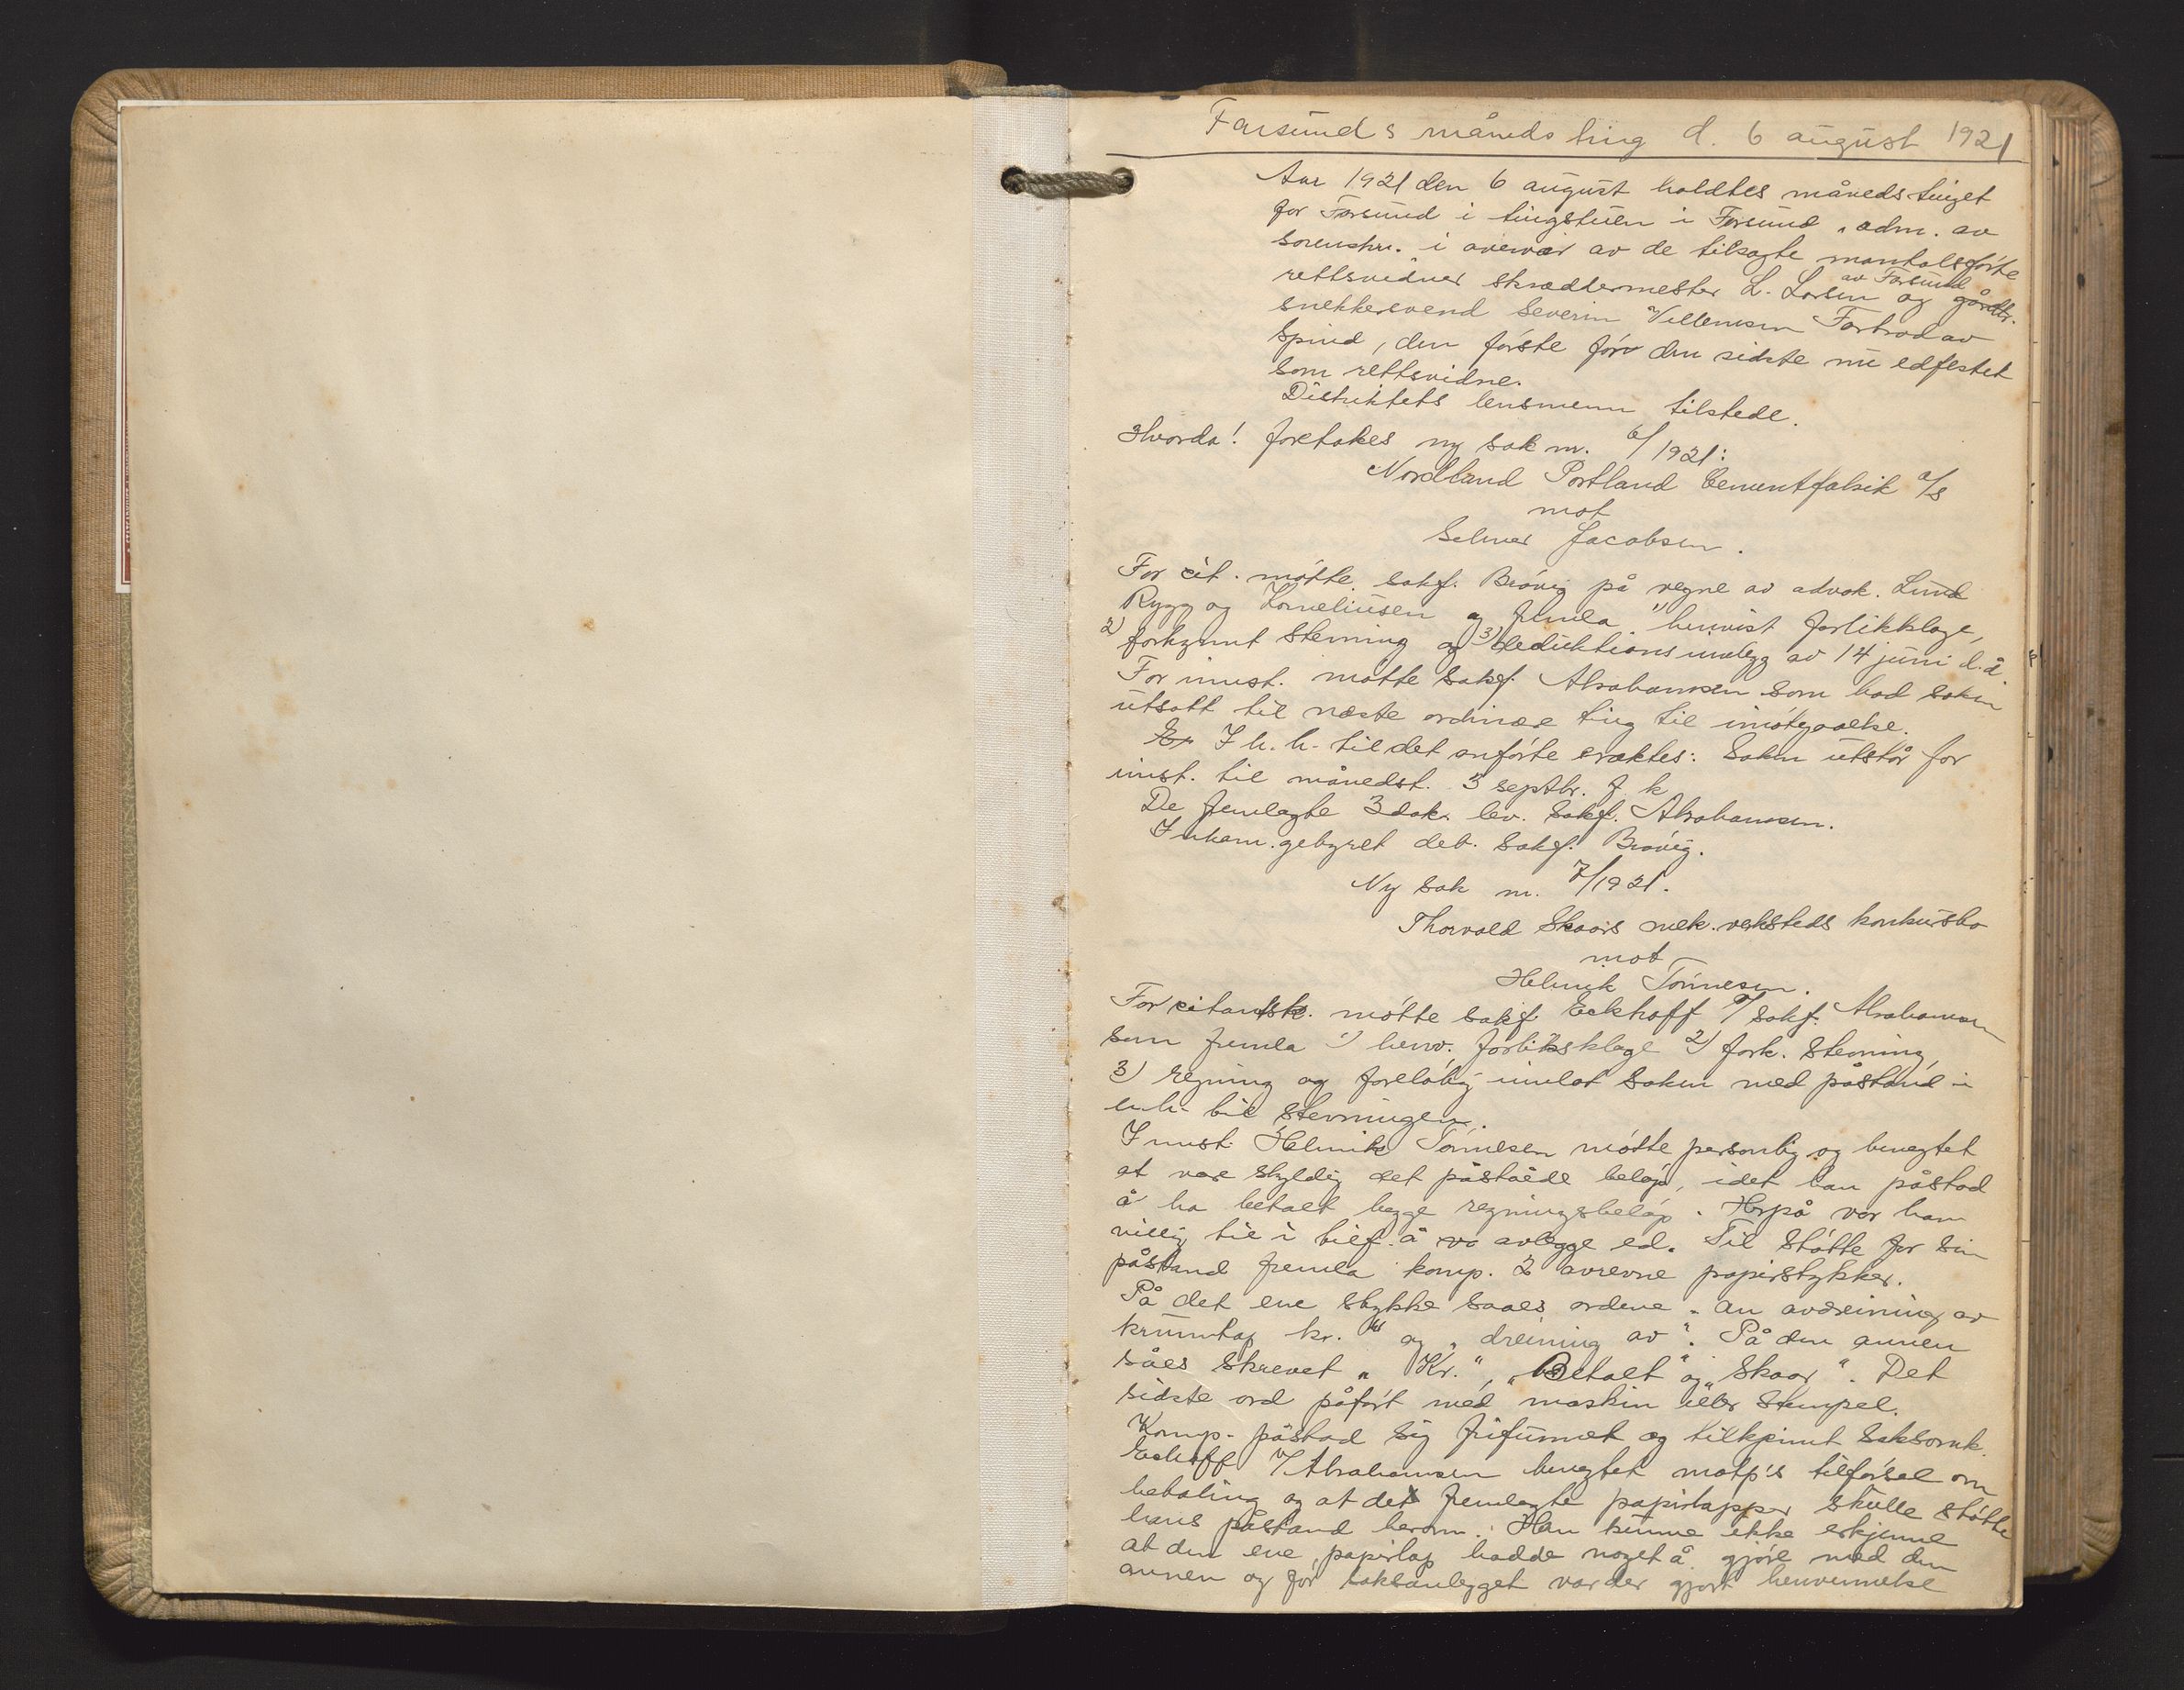 Farsunds månedsting d. 6 august 1921
Aar 1921 den 6 august holdtes månedstinget
for Farsund i tingstuen i Farsund, adm. av
sorenskr. i overvær av de tilsagte mantalsførte
rettsvidner skrædermester L. Larsen av Farsund og gårdbr.
snekkersvend Severin Villemsen Fartrod av
Spind, den første før den sidste nu edfestet
som rettsvidne.
Distriktets lensmenn tilstede.
Hvorda! foretokes ny sak nr. 6/1921:
Nordland Portland Cementfabrik a/s
mot
Selmer Jacobsen.
For cit. møtte sakf. Brøvig på vegne av advok. Lund
Rygg og Korneliusen og fremla 1) henvist forliksklage,
2) forkynnt stevning og 3) deduktionsinnlegg av 14 juni d.å.
For innst. møtte sakf. Abrahamsen som bad saken
utsatt til næste ordinære ting til imøtegaaelse.
Er I h. h. til det anførte eraktes: Saken utstår for
innst. til månedst. 3 septbr. f. k.
De fremlagte 3 dok. lev. sakf. Abrahamsen.
Inkam.gebyret deb. sakf. Brøvig.
Ny sak nr. 7/1921.
Thorvald Skaars mek. verksteds konkursbo
mot
Helmik Tønnesen.
For citantsk. møtte sakf. Eckhoff v/ sakf. Abrahamsen
som fremla 1) henv. forliksklage 2) fork. stevning,
3) regning og foreløbig innlot saken med påstand i
h. h. til stevningen.
Innst. Helmik Tønnesen møtte personlig og benegtet
at være skyldig det påståede beløp, idet han påstod
å ha betalt begge regningsbeløp. Herpå var han
villig til i tilf. å va avlegge ed. Til støtte for sin
påstand fremla komp. 2 avrevne papirstykker.
På det ene stykke saaes ordene „an avdreining av
krumtap kr.“ og „dreining av“. På den annen
såes skrevet „Kr.“, „Betalt“ og „Skaar“. Det
sidste ord påført med maskin eller stempel.
Komp. påstod sig frifunnet og tilkjennt saksomk.
Eckhoff v/Abrahamsen benegtet motp's tilførsel om
betaling og at det fremlagte papirlapper skulle støtte
hans påstand herom. Han kunne ikke erkjenne
at den ene papirlap hadde noget å gjøre med den
annen og før saksanlegget var der gjort henvennelse